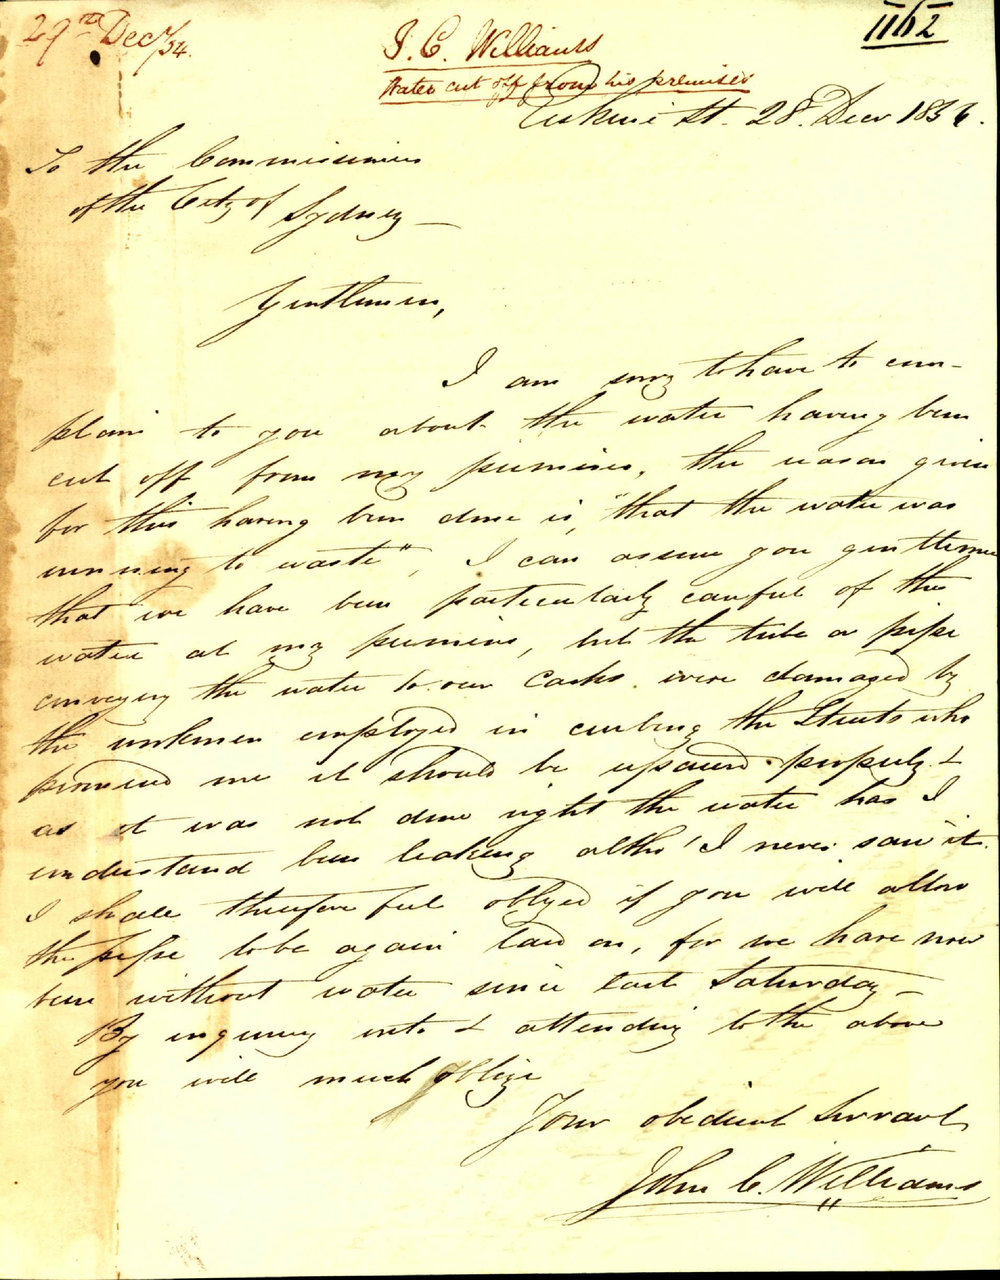 29th Decr/54.
J. C. Williams
11/62
Water cut off from his premises
Erskine St. 28. Decr 1854.
To the Commissioners
of the City of Sydney —
Gentlemen,
I am sorry to have to com-
plain to you about the water having been
cut off from my premises, the reason given
for this having been done is, "that the water was
running to waste", I can assure you gentlemen
that we have been particularly careful of the
water at my premises, but the tube or pipe
conveying the water to our Casks were damaged by
the workmen employed in curbing the Streets who
promised me it should be repaired properly &
as it was not done right the water has I
understand been leaking altho' I never saw it.
I shall therefore feel obliged if you will allow
the pipe to be again laid on, for we have now
been without water since last Saturday —
By inquiring into & attending to the above
you will much oblige
Your obedient Servant
John C. Williams